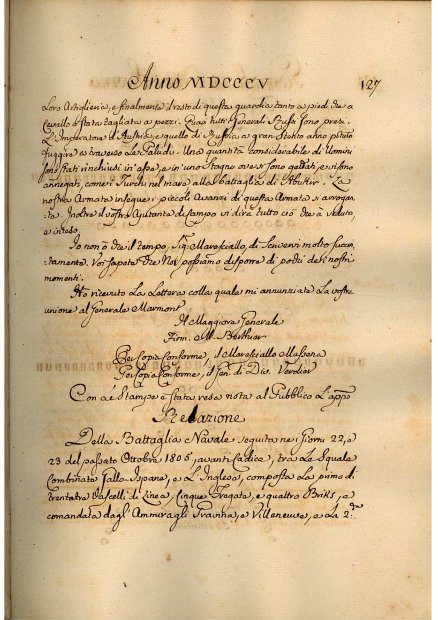 Anno MDCCCV. 127
Loro Artiglieria, e finalmente il resto di questa guardia tanto a piedi, che a
Cavallo è stata tagliata a pezzi. Quasi tutti i Generali Russi sono presi.
L'Imperatore d'Austria, e quello di Russia a gran stento anno potuto
fuggire a traverso le Paludi. Una quantità considerabile di Uomini
sono stati rinchiusi in essa, e in uno Stagno ove si sono gettati, e si sono
annegati, come i Turchi nel mare alla battaglia di Abukir. La
nostra Armata insegue i piccoli avanzi di questa Armata sì arrogan
te. Inoltre il vostro Ajutante di Campo vi dirà tutto ciò che à veduto,
e inteso.
Io non ò che il tempo, Sig. Maresciallo, di scrivervi molto succin
tamente. Voi sapete che Noi possiamo disporre di pochi de' nostri
momenti.
Ho ricevuto la Lettera colla quale mi annunziate la vostra
unione al Generale Marmont
Il Maggiore Generale
Firm. M. Berthier
Per Copia Conforme, il Maresciallo Massena
Per Copia Conforme, il Gen. di Div. Verdier
Con le Stampe è stata resa nota al Pubblico l'app.
Relazione
Della Battaglia Navale seguita nei Giorni 22, e
23 del passato Ottobre 1805, avanti Cadice, tra le Squadre
Combinata Gallo-Ispana, e l'Inglese, composta la prima di
trentatre Vascelli di Linea, Cinque Fregate, e quattro Briks, e
comandata dagl'Ammiragli Gravina, e Villeneuve, e la 2.da